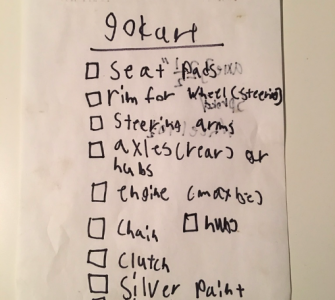 gokart
seat pads
rim for wheel (steering)
Steering arms
axles (rear) or
hubs
engine (maxbe)
Chain hubs
Clutch
Silver paint